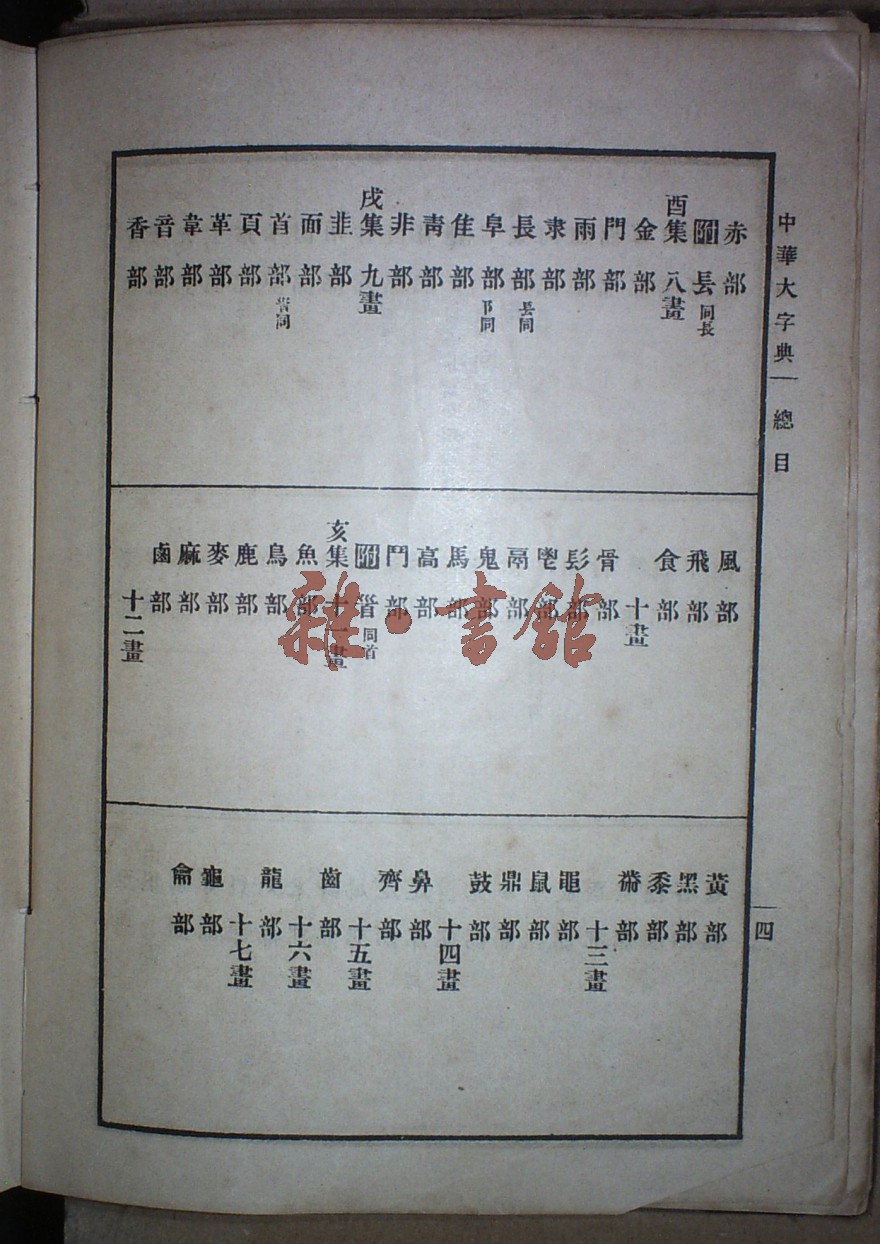 中華大字典 總目
四
赤部
附 镸同長
酉集 八畫
金部
門部
雨部
隶部
長部镸同
阜部阝同
隹部
靑部
非部
戌集 九畫
韭部
面部
首部𦣻同
頁部
革部
韋部
音部
香部
風部
飛部
食部
十畫
骨部
髟部
鬯部
鬲部
鬼部
馬部
高部
鬥部
附 𦣻同首
亥集 十一畫
魚部
鳥部
鹿部
麥部
麻部
鹵部
十二畫
黃部
黑部
黍部
黹部
十三畫
黽部
鼠部
鼎部
鼓部
十四畫
鼻部
齊部
十五畫
齒部
十六畫
龍部
十七畫
龜部
龠部
雜·書館